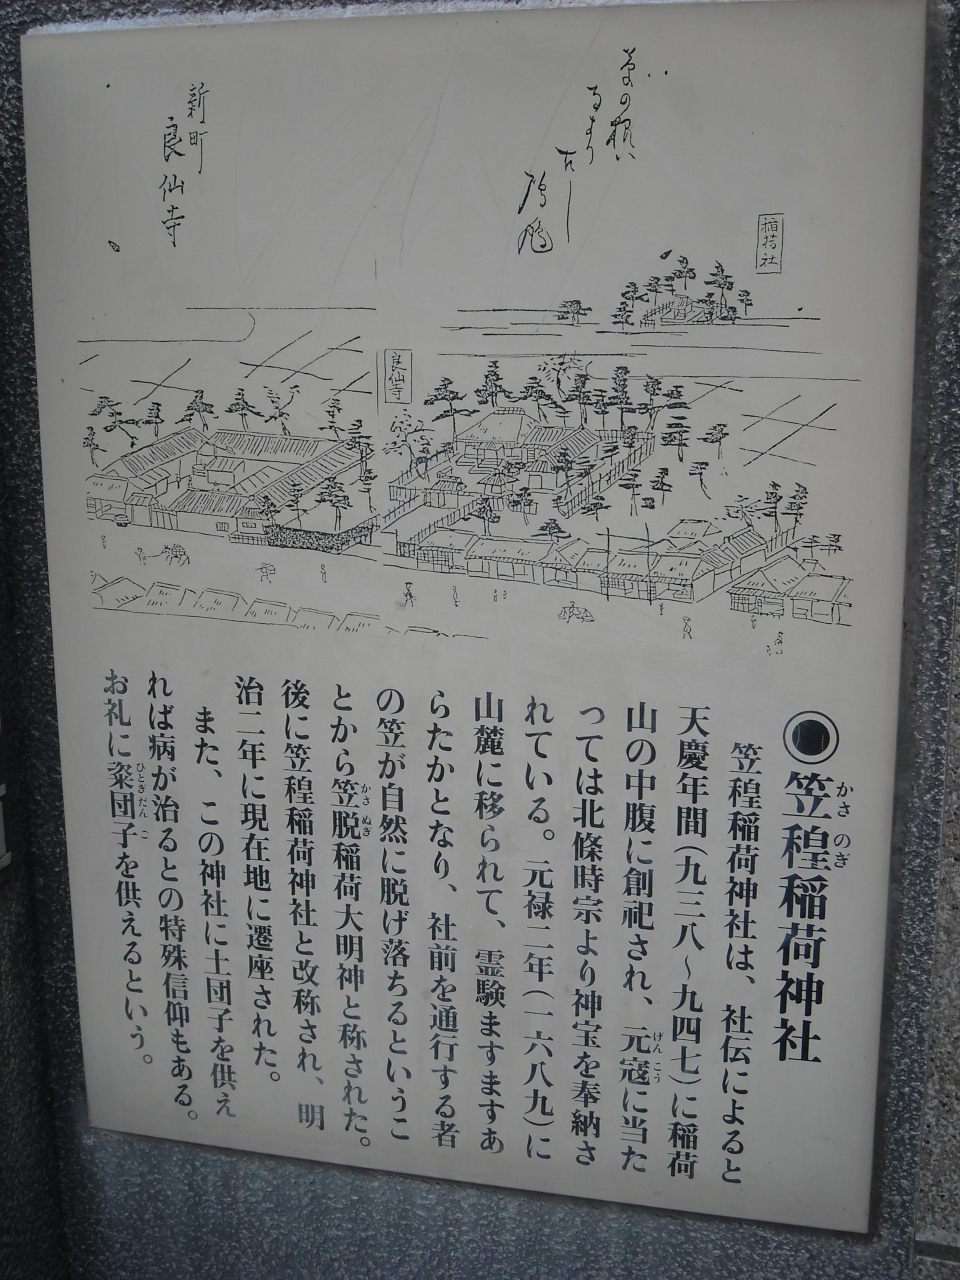 稲荷社
良仙寺
新町
良仙寺
かさのぎ
◉笠䅣稲荷神社
笠䅣稲荷神社は、社伝によると
天慶年間(九三八~九四七)に稲荷
げんこう
山の中腹に創祀され、元寇に当た
っては北條時宗より神宝を奉納さ
れている。元禄二年(一六八九)に
山麓に移られて、霊験ますますあ
らたかとなり、社前を通行する者
の笠が自然に脱げ落ちるというこ
かさぬぎ
とから笠脱稲荷大明神と称された。
後に笠䅣稲荷神社と改称され、明
治二年に現在地に遷座された。
また、この神社に土団子を供え
れば病が治るとの特殊信仰もある。
ひとぎだんご
お礼に粢団子を供えるという。